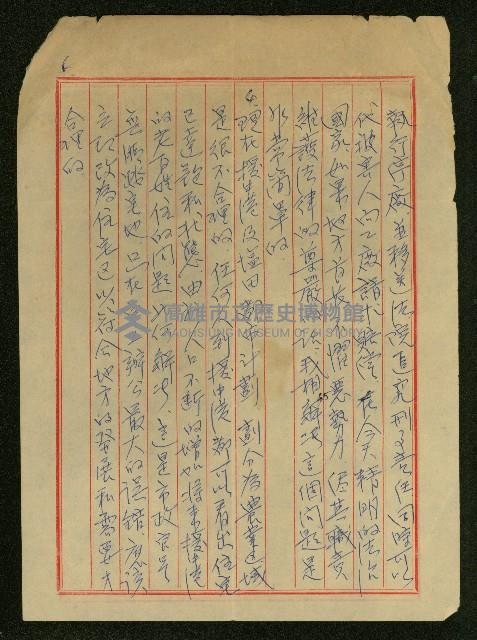 執行守廠並移送法院追究刑事責任同時可以
代被害人向工廠請求賠償在今天精明的法治
國家如果地方首長不懼惡勢力伍其職責
維護法律的尊嚴該我相解決這個問題是
非常簡單的
現在援中港及鹽田都市計劃劃分為農業區域
是很不合理的任何人到援中港都可以看出住宅
已達飽和狀態由於人口不斷的增加將來援中港
的老百姓住的問題如何解決這是市政官員
無照路宅地只在辦公最大的誤錯應該
立即改為住宅區以符合地方的發展和需要才
合理的
6.
高雄市立歷史博物館
KAOHSIUNG MUSEUM OF HISTORY